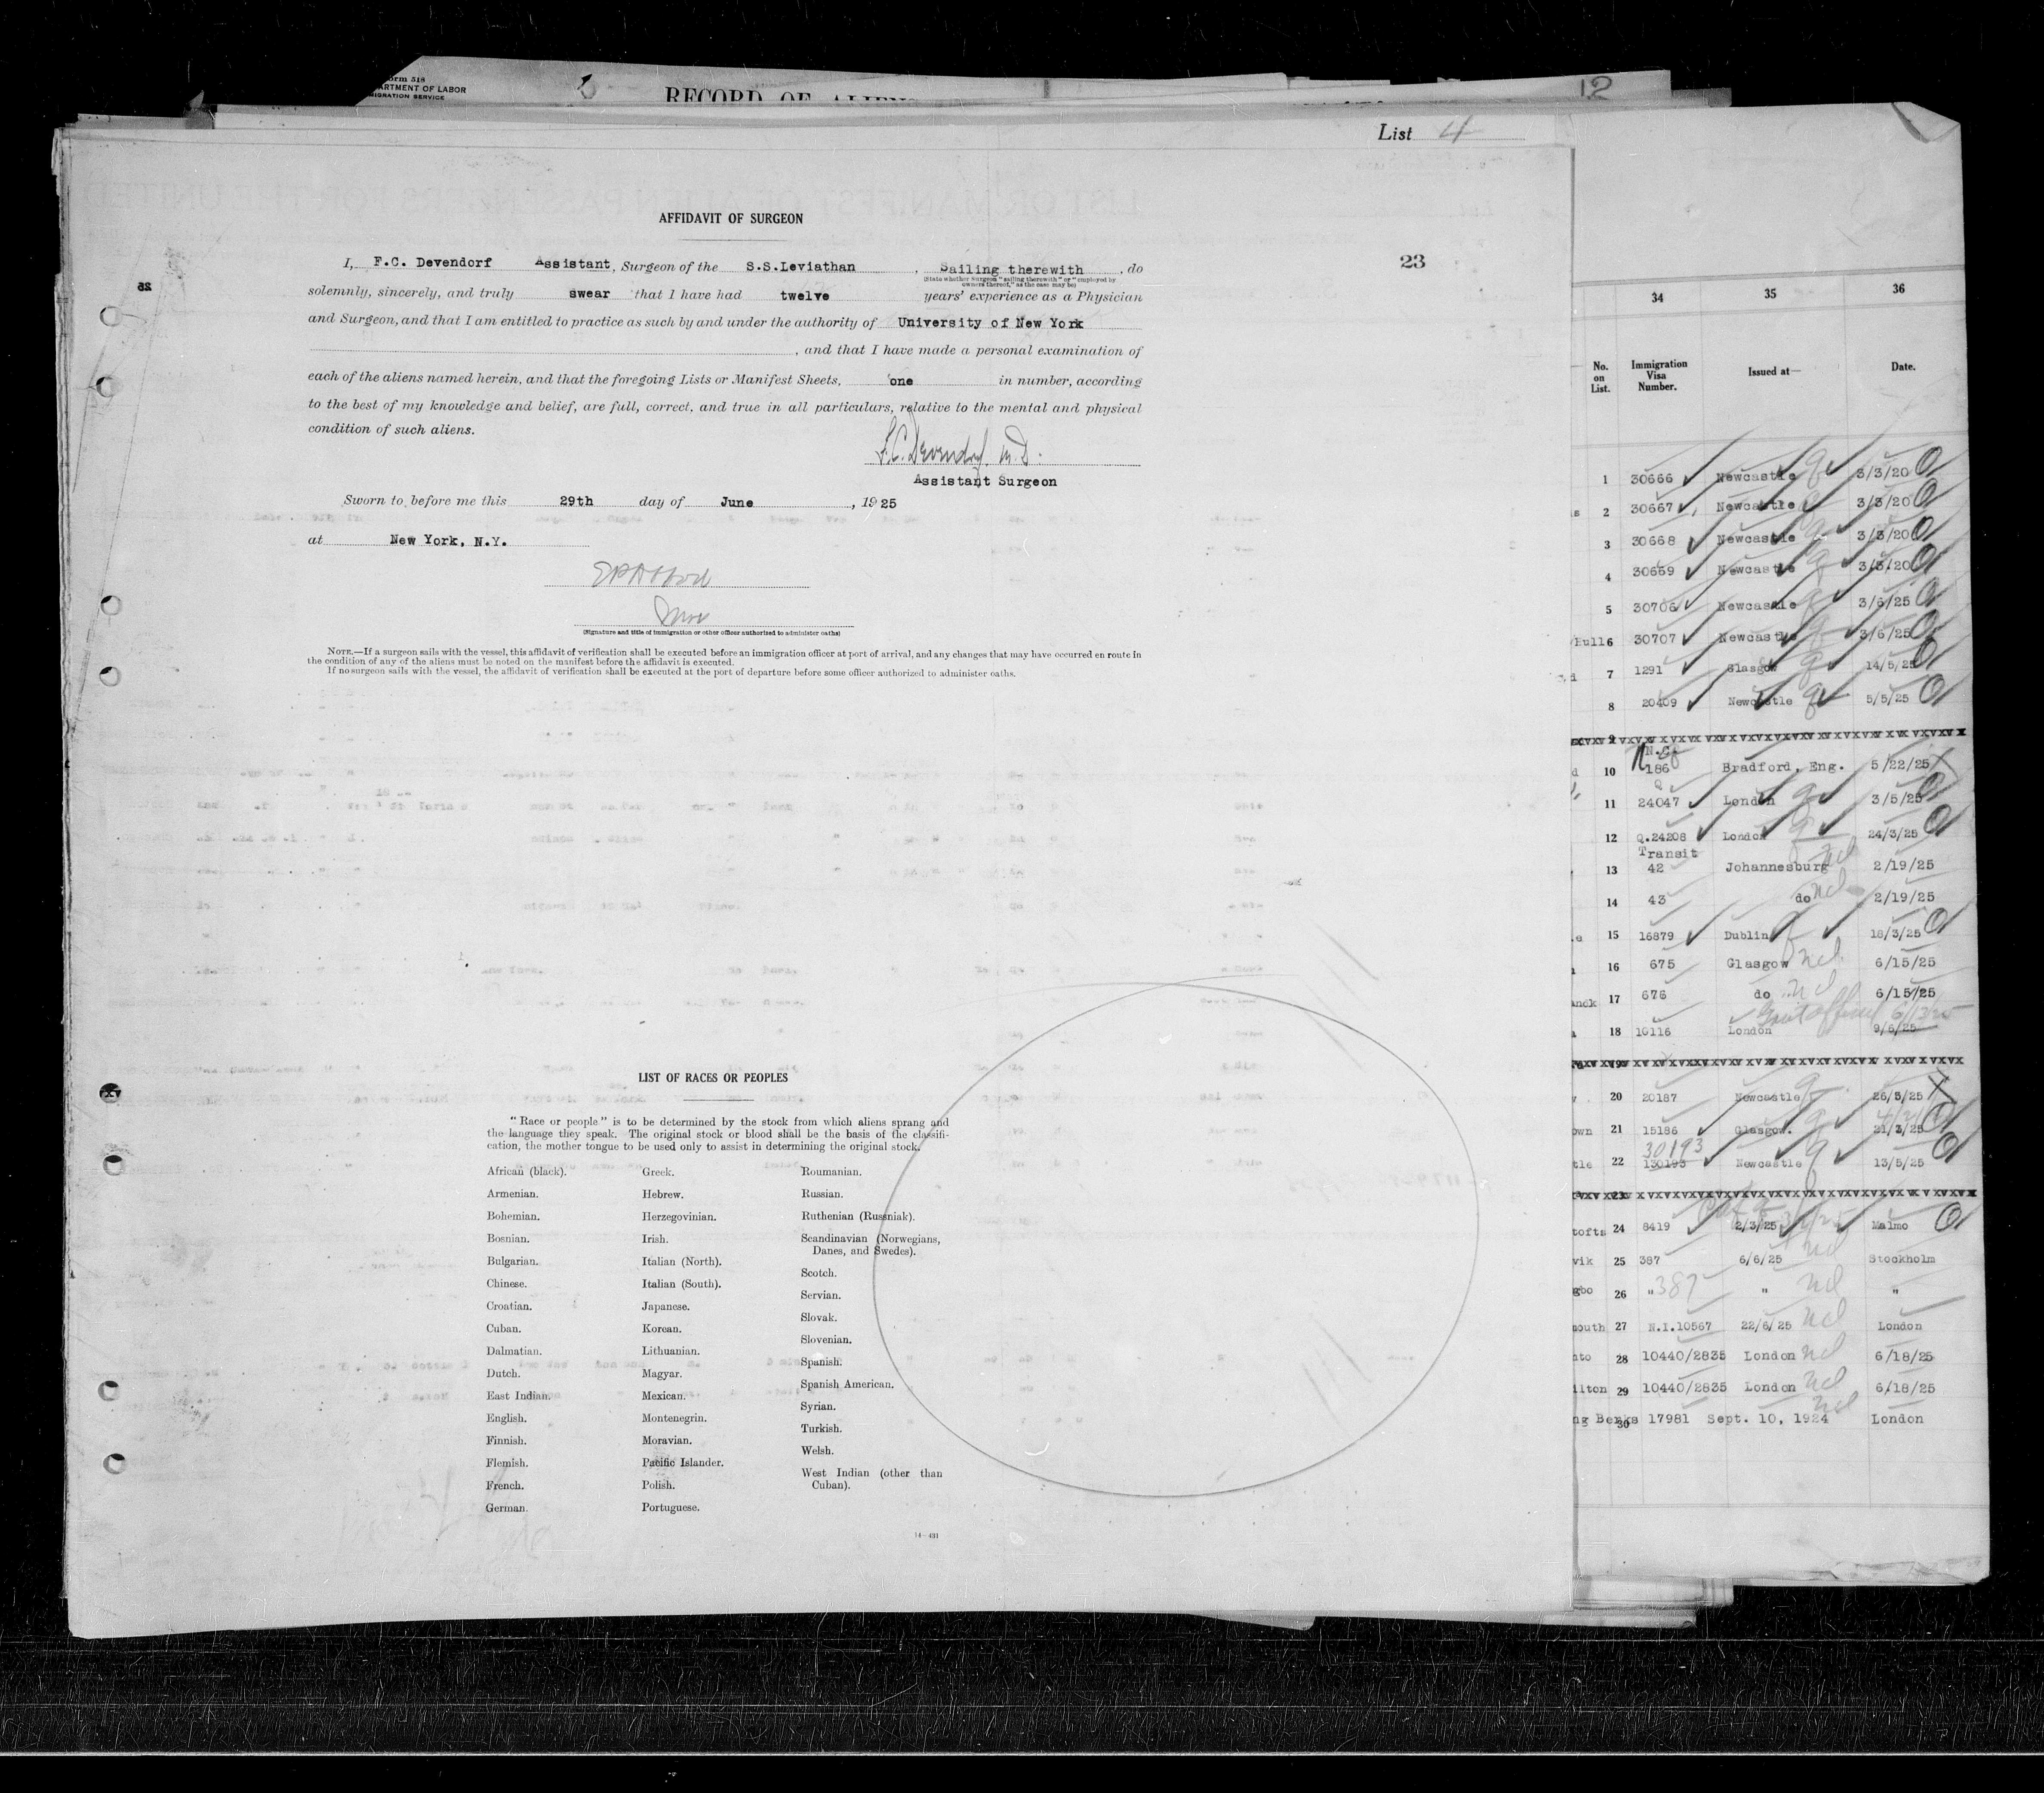 orm 518
ARTMENT OF LABOR
MIGRATION SERVICE
RECORD OF ALIENS
12
List 4
AFFIDAVIT OF SURGEON
23
I, F.C. Devendorf Assistant, Surgeon of the S.S.Leviathan, Sailing therewith, do
(State whether Surgeon "sailing therewith" or "employed by
owners thereof," as the case may be)
solemnly, sincerely, and truly swear that I have had twelve years' experience as a Physician
and Surgeon, and that I am entitled to practice as such by and under the authority of University of New York
, and that I have made a personal examination of
each of the aliens named herein, and that the foregoing Lists or Manifest Sheets, one in number, according
to the best of my knowledge and belief, are full, correct, and true in all particulars, relative to the mental and physical
condition of such aliens.
F.C. Devendorf. M.D.
Assistant Surgeon
Sworn to before me this 29th day of June, 1925
at New York, N.Y.
(Signature and title of immigration or other officer authorized to administer oaths)
NOTE.—If a surgeon sails with the vessel, this affidavit of verification shall be executed before an immigration officer at port of arrival, and any changes that may have occurred en route in
the condition of any of the aliens must be noted on the manifest before the affidavit is executed.
If no surgeon sails with the vessel, the affidavit of verification shall be executed at the port of departure before some officer authorized to administer oaths.
LIST OF RACES OR PEOPLES
"Race or people" is to be determined by the stock from which aliens sprang and
the language they speak. The original stock or blood shall be the basis of the classifi-
cation, the mother tongue to be used only to assist in determining the original stock.
African (black).
Armenian.
Bohemian.
Bosnian.
Bulgarian.
Chinese.
Croatian.
Cuban.
Dalmatian.
Dutch.
East Indian.
English.
Finnish.
Flemish.
French.
German.
Greek.
Hebrew.
Herzegovinian.
Irish.
Italian (North).
Italian (South).
Japanese.
Korean.
Lithuanian.
Magyar.
Mexican.
Montenegrin.
Moravian.
Pacific Islander.
Polish.
Portuguese.
Roumanian.
Russian.
Ruthenian (Russniak).
Scandinavian (Norwegians,
Danes, and Swedes).
Scotch.
Servian.
Slovak.
Slovenian.
Spanish.
Spanish American.
Syrian.
Turkish.
Welsh.
West Indian (other than
Cuban).
14—431
34 35 36
No. on List. Immigration Visa Number. Issued at— Date.
1 30666 Newcastle 3/3/20
2 30667 Newcastle 3/3/20
3 30668 Newcastle 3/3/20
4 30669 Newcastle 3/3/20
5 30706 Newcastle 3/6/25
Hull 6 30707 Newcastle 3/6/25
7 1291 Glasgow 14/5/25
8 20409 Newcastle 5/5/25
9
10 186 Bradford, Eng. 5/22/25
11 24047 London 3/5/25
12 Q.24208 London 24/3/25
Transit
13 42 Johannesburg 2/19/25
14 43 do 2/19/25
15 16879 Dublin 18/3/25
16 675 Glasgow 6/15/25
17 676 do 6/15/25
18 10116 London 9/6/25
19
20 20187 Newcastle 26/5/25
own 21 15186 Glasgow. 21/3/25
30193
tle 22 130193 Newcastle 13/5/25
23
tofts 24 8419 2/3/25 Malmo
vik 25 387 6/6/25 Stockholm
gbo 26 " 387 " "
mouth 27 N.I.10567 22/6/25 London
nto 28 10440/2835 London 6/18/25
ilton 29 10440/2835 London 6/18/25
ng Berks 30 17981 Sept. 10, 1924 London